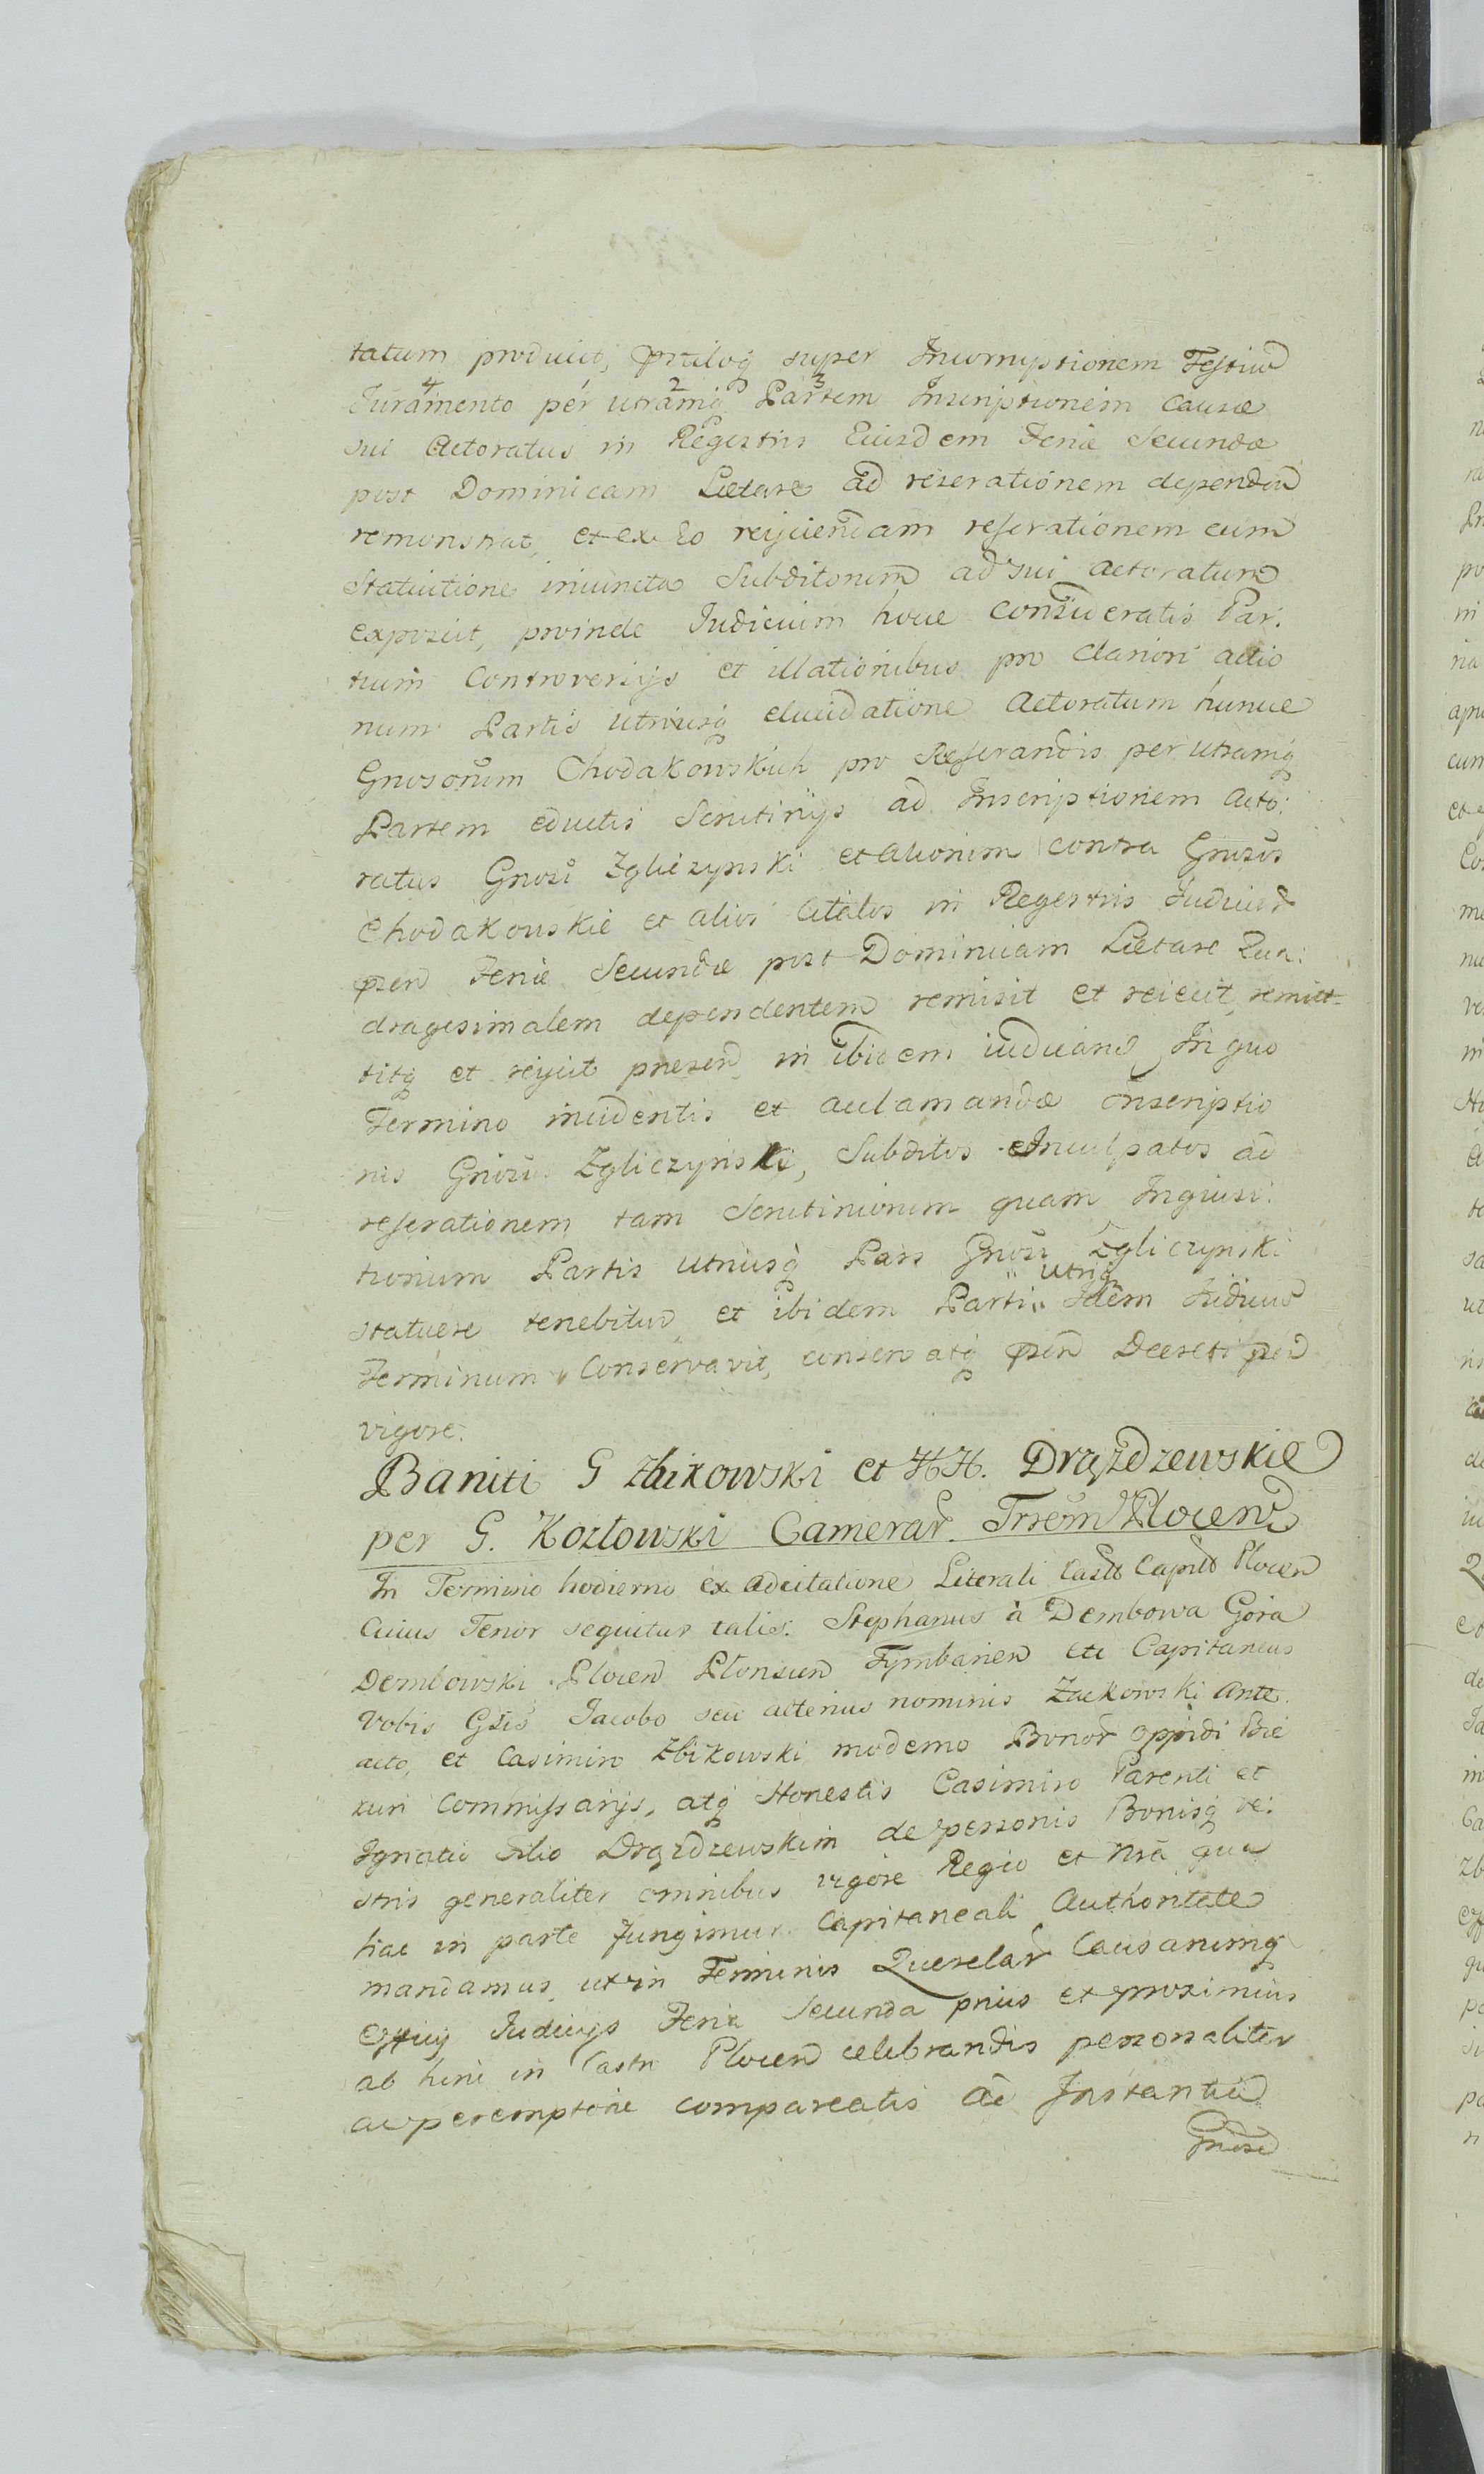 tatum producit, pstitoq super Incorruptionem Testium
Juramento per utramq Partem Inscriptionem causæ
sui Actoratus in Regestris Eiusdem Feriæ Secundæ
post Dominicam Lætare ad reserationem dependem
remonstrat, et ex Eo reijciendam reserationem cum
Statuitione iniuncta Subditorum ad sui actoratum
exposuit, proinde Judicium hocce consideratis Par:
tium Controversijs et illationibus pro clariori actio
num Partis utriusq elucidatione Actoratum huncce
Gnosorum Chodakowskich pro Reserandis per utramq
Partem eductis Scrutinijs ad Inscriptionem acto:
ratus Gnosi Zgliczynski et aliorum contra Gnosos
Chodakowskie et alios citatos in Regestris Judicior
psen Feriæ Secundæ post Dominicam Lætare Qua:
dragesimalem dependentem remisit et reiecit, remitt=
titq et reijcit presen in ibidem iudicand, In quo
Termino incidentis et aclamandæ Inscriptio
nis Gnosi Zgliczynski, Subditos Inculpatos ad
reserationem tam Scrutiniorum quam Inquisi:
tionum Partis utriusq Pars Gnosi Zgliczynski
statuere tenebitur, et ibidem Parti utriq Idem Judicium
Terminum Conservavit, conservatq psen Decreti psen
vigore.
Baniti G Zbikowski et HH. Drążdzewskie
per G. Kozłowski Camerar. Trrem Plocen
In Termino hodierno ex adcitatione Literali Castr Capnli Plocen
Cuius Tenor sequitur talis. Stephanus à Dembowa Gora
Dembowski Plocen Plonscen Tymbarien etc Capitaneus
Vobis Gsis Jacobo seu alterius nominis Zackowski Ante
acto, et Casimiro Zbikowski moderno Bonor oppidi Bie
zun Commissarijs, atq Honestis Casimiro Parenti et
Ignatio Filio Drązdzewskim de personis Bonisq ve:
stris generaliter omnibus vigore Regia et Nra qua
hac in parte fungimur Capitaneali Authoritate
mandamus, ut in Terminis Querelar Causarumq
Officij Judicijs Feria Secunda prius et proximius
ab hinc in Castr Plocen celebrandis personaliter
ac peremptorie compareatis ad Instantiã
Gnosi